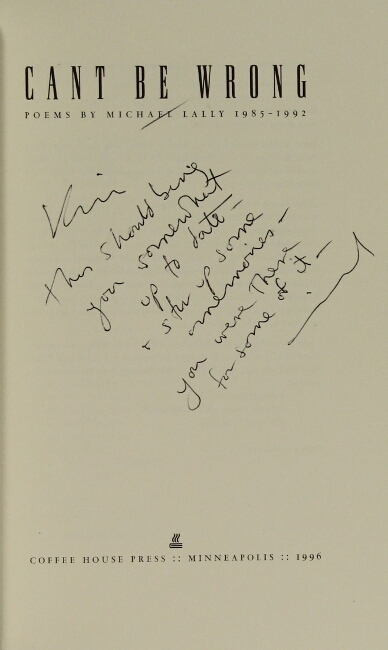 CANT BE WRONG
POEMS BY MICHAEL LALLY 1985-1992
this should bring
you somewhat
up to date—
& stir up some
memories—
you were there
for some of it—
COFFEE HOUSE PRESS :: MINNEAPOLIS :: 1996